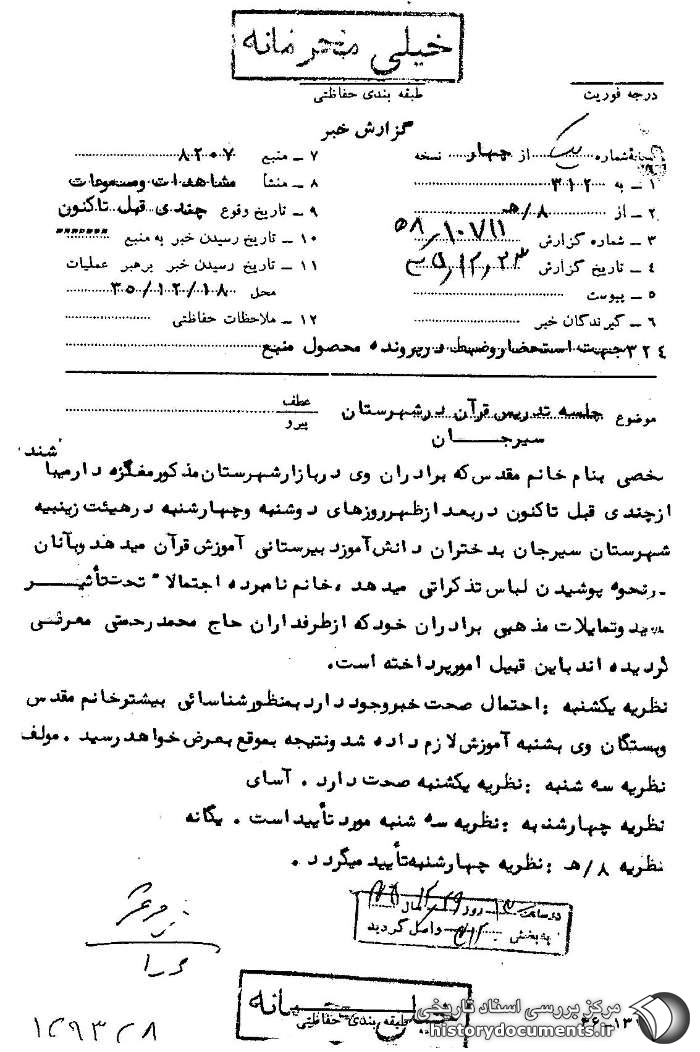 خیلی محرمانه
طبقه بندی حفاظتی
درجه فوریت
گزارش خبر
شماره یک از چهار نسخه
۱ - به ۳۱۲
۲ - از ۸/هـ
۳ - شماره گزارش
۴ - تاریخ گزارش
۵ - پیوست
۶ - گیرندگان خبر
۷ - منبع ۸۲۰۷
۸ - منشأ مشاهدات ومسموعات
۹ - تاریخ وقوع چندی قبل تاکنون
۱۰ - تاریخ رسیدن خبر به منبع """"""
۱۱ - تاریخ رسیدن خبر برهبر عملیات
محل ۳۵/۱۲/۱۸
۱۲ - ملاحظات حفاظتی
۳۲۴ جهت استحضار وضبط درپرونده محصول منبع
موضوع جلسه تدریس قرآن درشهرستان
سیرجــــان
عطف
پیرو
شخصی بنام خانم مقدس که برادران وی دربازارشهرستان مذکورمغازه دارمیبا"شند"
ازچندی قبل تاکنون دربعد ازظهرروزهای دوشنبه وچهارشنبه درهیئت زینبیه
شهرستان سیرجان بدختران دانش آموزدبیرستانی آموزش قرآن میدهد وبآنان
درنحوه پوشیدن لباس تذکراتی میدهد ، خانم نامبرده احتمالا" تحت تأثیــــر
دید وتمایلات مذهبی برادران خودکه ازطرفداران حاج محمد رحمتی معرفــی
گردیده اند باین قبیل امورپرداخته است.
نظریه یکشنبه : احتمال صحت خبروجود دارد بمنظورشناسائی بیشترخانم مقدس
وبستگان وی بشنبه آموزش لازم داده شد ونتیجه بموقع بعرض خواهد رسید . مولف
نظریه سه شنبه : نظریه یکشنبه صحت دارد . آسای
نظریه چهارشنبه : نظریه سه شنبه مورد تأیید است . یگانه
نظریه ۸/هـ : نظریه چهارشنبه تأیید میگردد .
در ساعت روز
به بخش ۳۱۲ واصل گردید
طبقه بندی حفاظتی
مرکز بررسی اسناد تاریخی
historydocuments.ir